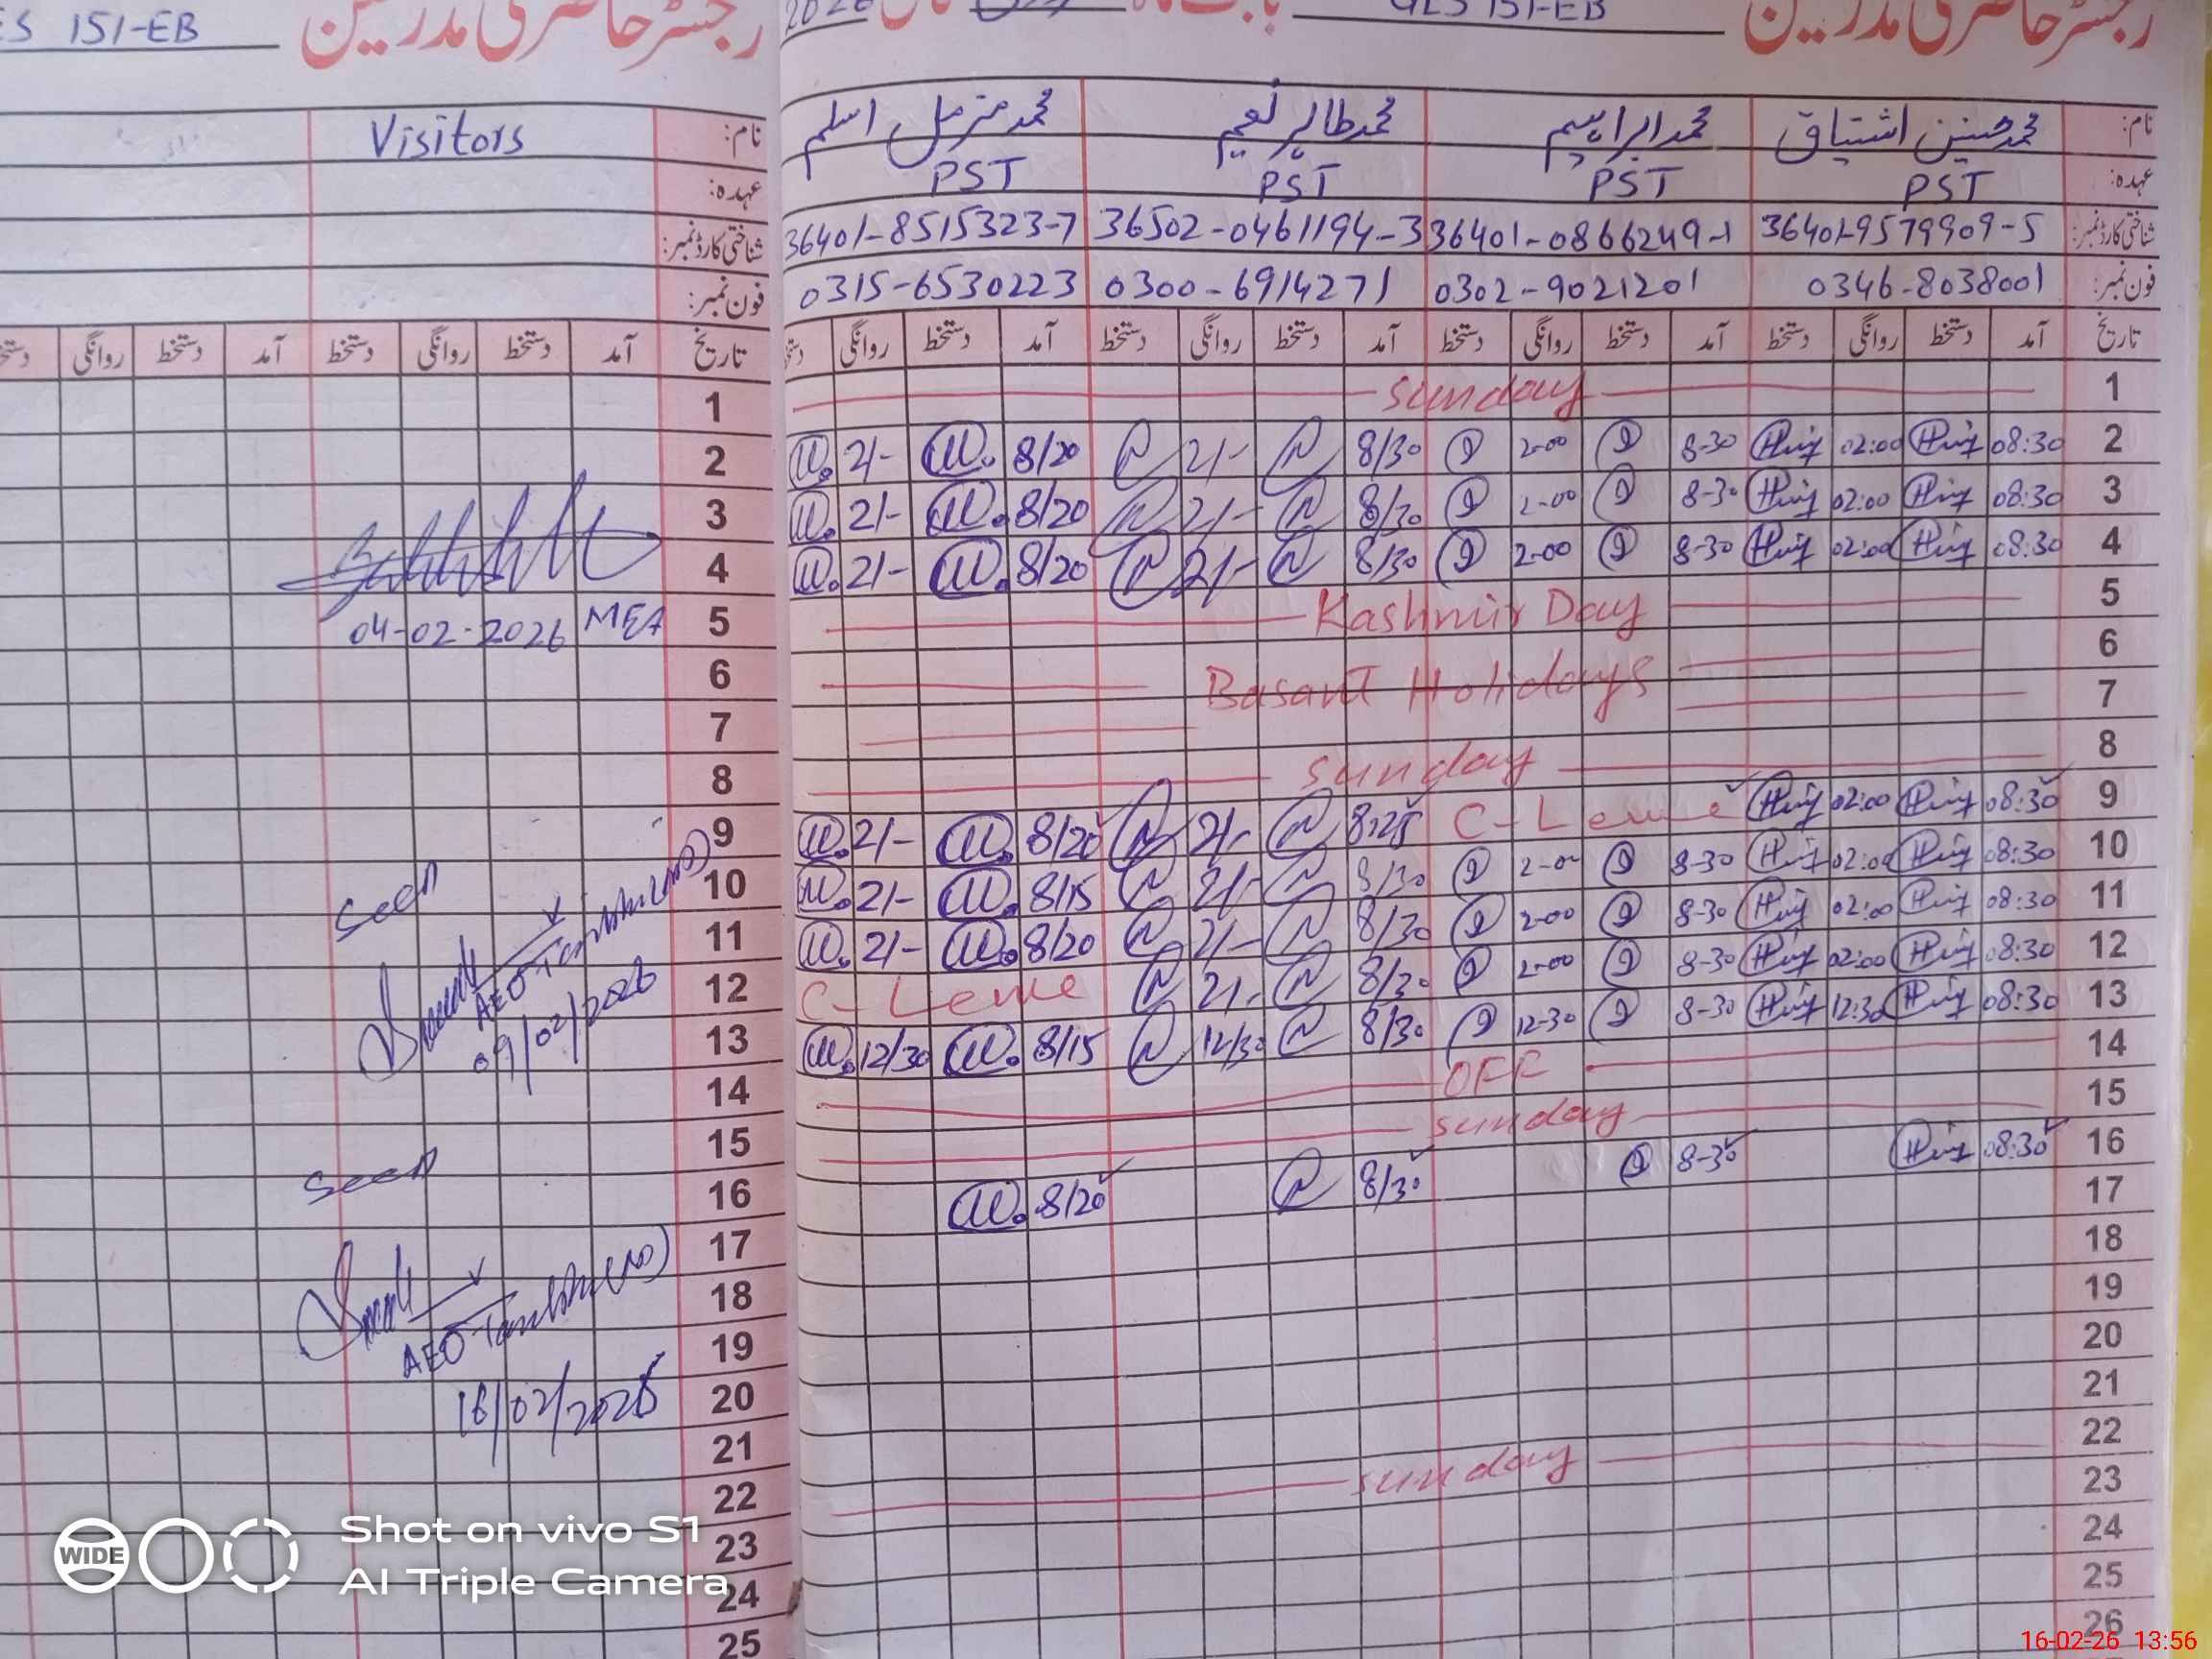 ES 151-EB رجسٹر حاضری مدرسین
Visitors نام:
عہدہ:
شناختی کارڈ نمبر:
فون نمبر:
تاریخ آمد دستخط روانگی دستخط آمد دستخط روانگی
1
2
3
4
5 MEA 04-02-2026
6
7
8
9
10 Seen
11
12 AEO
13 09/02/2026
14
15
16 Seen
17
18
19 AEO
20 16/02/2026
21
22
23
24
25
رجسٹر حاضری مدرسین GES 151-EB بابت ماہ سال 2026
نام: محمد حسنین اشتیاق محمد ابراہیم محمد طاہر نعیم محمد مزمل اسلم
عہدہ: PST PST PST PST
شناختی کارڈ نمبر: 36401-9579909-5 36401-0866249-1 36502-0461194-3 36401-8515323-7
فون نمبر: 0346-8038001 0302-9021201 0300-6914271 0315-6530223
تاریخ آمد دستخط روانگی دستخط آمد دستخط روانگی دستخط آمد دستخط روانگی دستخط آمد دستخط روانگی
1 Sunday
2 08:30 02:00 8-30 2-00 8/30 2/- 8/20 2/-
3 08:30 02:00 8-30 2-00 8/30 2/- 8/20 2/-
4 08:30 02:00 8-30 2-00 8/30 2/- 8/20 2/-
5 Kashmir Day
6 Basant Holidays
7
8 Sunday
9 08:30 02:00 C-Leave 8:25 2/- 8/20 2/-
10 08:30 02:00 8-30 2-00 8/30 2/- 8/15 2/-
11 08:30 02:00 8-30 2-00 8/30 2/- 8/20 2/-
12 08:30 02:00 8-30 2-00 8/30 2/- C-Leave
13 08:30 12:30 8-30 12-30 8/30 12/30 8/15 12/30
14 OFF
15 Sunday
16 08:30 8-30 8/30 8/20
17
18
19
20
21
22 Sunday
23
24
25
26
WIDE
Shot on vivo S1
AI Triple Camera
16-02-26 13:56